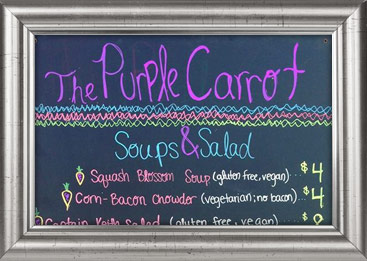 The Purple Carrot
Soups & Salad
Squash Blossom Soup (gluten free, vegan) ... $4
Corn-Bacon Chowder (vegetarian; no bacon) ... $4
Captain Keith Salad (gluten free, vegan)